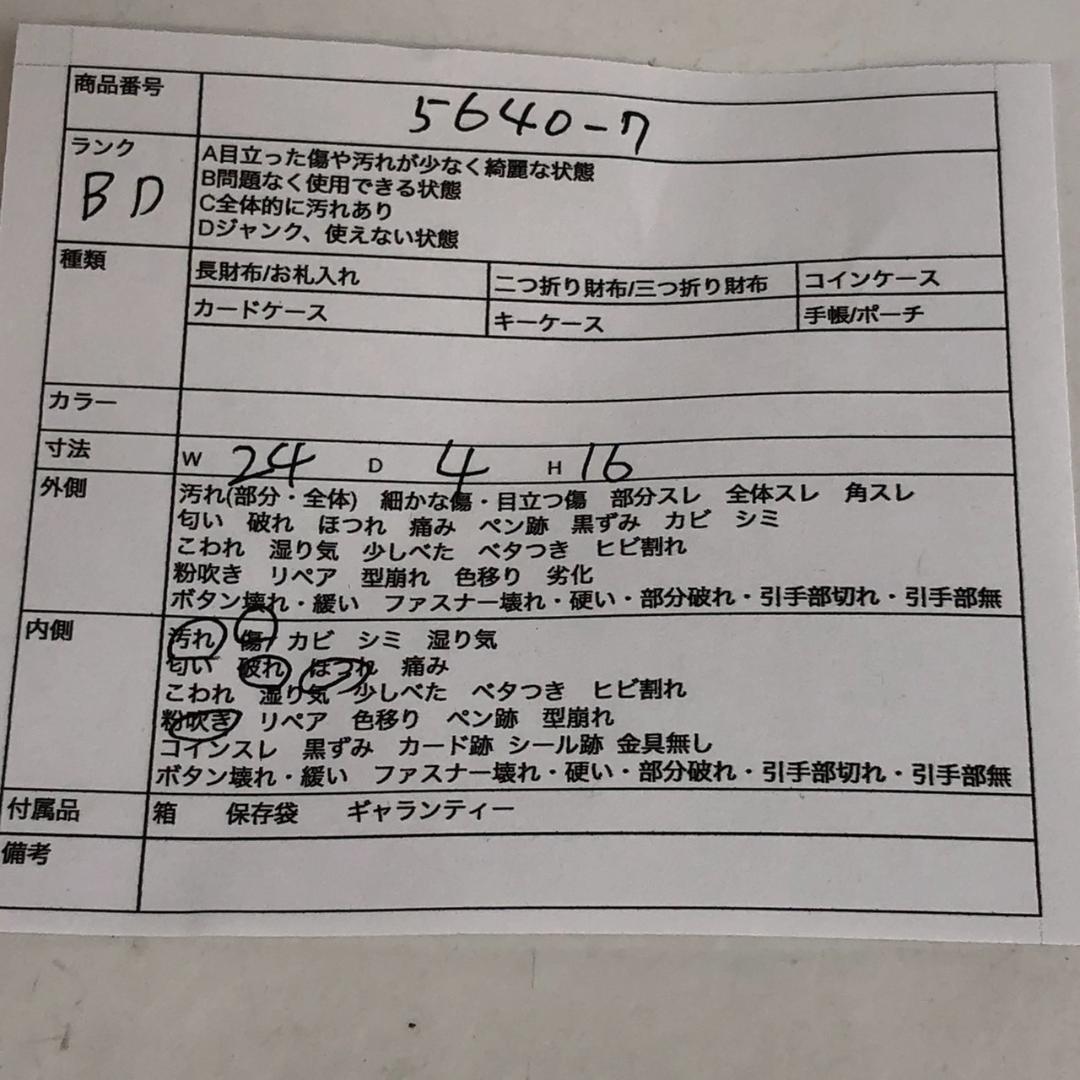 商品番号 5640-7
ランク BD
A目立った傷や汚れが少なく綺麗な状態
B問題なく使用できる状態
C全体的に汚れあり
Dジャンク、使えない状態
種類
長財布/お札入れ 二つ折り財布/三つ折り財布 コインケース
カードケース キーケース 手帳/ポーチ
カラー
寸法 W 24 D 4 H 16
外側
汚れ(部分・全体) 細かな傷・目立つ傷 部分スレ 全体スレ 角スレ
匂い 破れ ほつれ 痛み ペン跡 黒ずみ カビ シミ
こわれ 湿り気 少しべた ベタつき ヒビ割れ
粉吹き リペア 型崩れ 色移り 劣化
ボタン壊れ・緩い ファスナー壊れ・硬い・部分破れ・引手部切れ・引手部無
内側
汚れ 傷 カビ シミ 湿り気
匂い 破れ ほつれ 痛み
こわれ 湿り気 少しべた ベタつき ヒビ割れ
粉吹き リペア 色移り ペン跡 型崩れ
コインスレ 黒ずみ カード跡 シール跡 金具無し
ボタン壊れ・緩い ファスナー壊れ・硬い・部分破れ・引手部切れ・引手部無
付属品 箱 保存袋 ギャランティー
備考